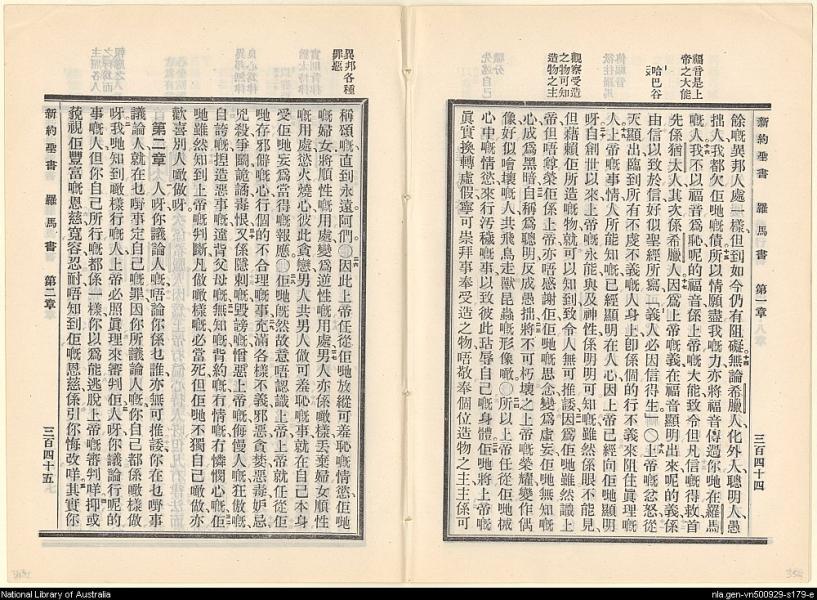 新約聖書 羅馬書 第一章 三百四十四
福音是上
帝之大能
哈巴谷
觀察受造
之物可知
造物之主
餘嘅異邦人處一樣但到如今仍有阻礙無論希臘人化外人聰明人愚
拙人我都欠佢哋嘅債所以情願盡我嘅力亦將福音傳過你哋在羅馬
嘅人我不以福音爲恥呢的福音係上帝嘅大能致令但凡信嘅得救首
先係猶太人其次係希臘人因爲上帝嘅義在福音顯明出來呢的義係
由信以致於信好似聖經所寫「義人必因信得生」〇上帝嘅忿怒從
天顯出臨到所有不虔不義嘅人身上卽係個的行不義來阻住眞理嘅
人上帝嘅事情人所能知嘅已經顯明在人心因上帝已經向佢哋顯明
呀自創世以來上帝嘅永能與及神性係明明可知嘅雖然係眼不能見
但藉賴佢所造嘅物就可以知到致令人無可推諉因爲佢哋雖然識上
帝但唔尊榮佢係上帝亦唔感謝佢佢哋嘅思念變爲虛妄佢哋無知嘅
心成爲黑暗自稱爲聰明反成愚拙將不可朽壞之上帝嘅榮耀變作偶
像好似噲壞嘅人共飛鳥走獸昆蟲嘅形像噉〇所以上帝任從佢哋
心中嘅情慾來行汚穢嘅事以致彼此玷辱自己嘅身體佢哋將上帝嘅
眞實換轉虛假寧可崇拜事奉受造之物唔敬奉個位造物之主主係可
異邦各種
罪惡
稱頌嘅直到永遠阿們〇因此上帝任從佢哋放縱可羞恥嘅情慾佢哋
嘅婦女將順性嘅用處變爲逆性嘅用處男人亦係噉樣丟棄婦女順性
嘅用處慾火燒心彼此貪戀男人共男人做可羞恥嘅事就在自己本身
受佢哋妄爲當得嘅報應〇佢哋旣然故意唔認識上帝上帝就任從佢
哋存邪僻嘅心行個的不合理嘅事充滿各樣不義邪惡貪婪惡毒妒忌
兇殺爭鬭詭譎毒恨又係隱刺嘅毀謗嘅憎惡上帝嘅侮慢人嘅狂傲嘅
自誇嘅捏造惡事嘅違背父母嘅無知嘅背約嘅冇情嘅冇憐憫心嘅佢
哋雖然知到上帝嘅判斷凡做噉樣嘅必當死但佢哋不獨自己噉做亦
歡喜別人噉做呀
第二章 人呀你議論人嘅唔論你係乜誰亦無可推諉你在乜嘢事
議論人就在乜嘢事定自己嘅罪因你所議論人嘅你自己都係噉樣做
呀我哋知到噉樣行嘅人上帝必照眞理來審判佢人呀你議論行呢的
事嘅人但你自己所行嘅都係一樣你以爲能逃脫上帝嘅審判咩抑或
藐視佢豐富嘅恩慈寬容忍耐唔知到佢嘅恩慈係引你悔改咩其實你
新約聖書 羅馬書 第二章 三百四十五
National Library of Australia
nla.gen-vn500929-s179-e